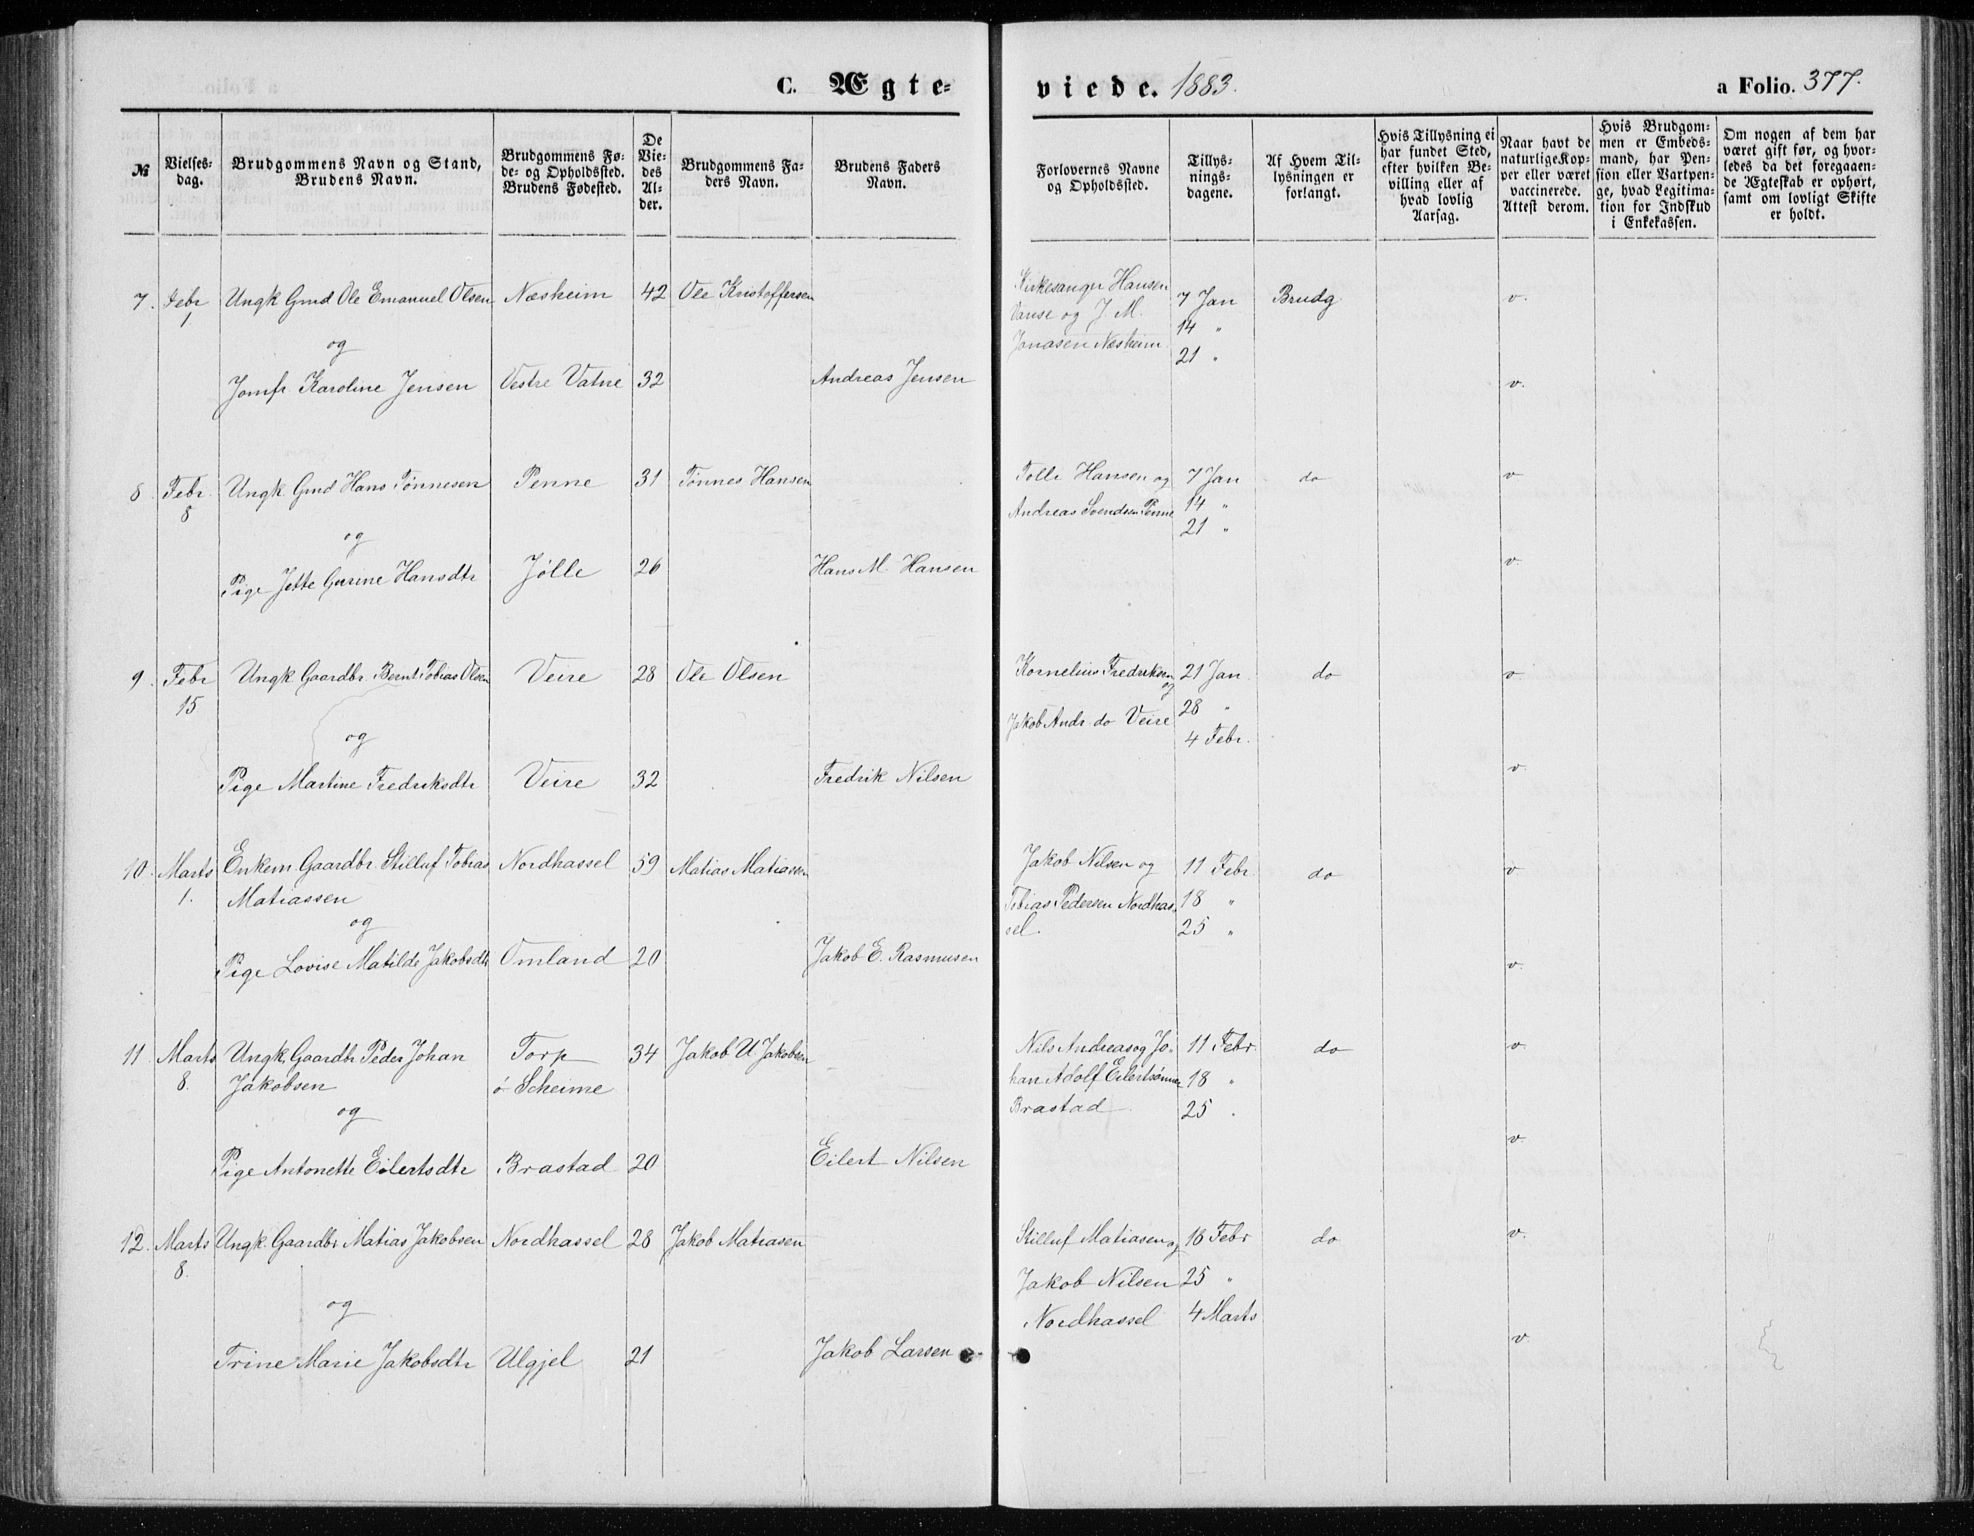 C. Ægte-
viede. 1883.
a Folio. 377.
№
Vielses-
dag.
Brudgommens Navn og Stand,
Brudens Navn.
Brudgommens Fø-
de- og Opholdssted.
Brudens Fødested.
De
Vie-
des
Al-
der.
Brudgommens Fa-
ders Navn.
Brudens Faders
Navn.
Forlovernes Navne
og Opholdssted.
Tillys-
nings-
dagene.
Af Hvem Til-
lysningen er
forlangt.
Hvis Tillysning ei
har fundet Sted,
efter hvilken Be-
villing eller af
hvad lovlig
Aarsag.
Naar havt de
naturlige Kop-
per eller været
vaccinerede.
Attest derom.
Hvis Brudgom-
men er Embeds-
mand, har Pen-
sion eller Vartpen-
ge, hvad Legitima-
tion for Indskud
i Enkekassen.
Om nogen af dem har
været gift før, og hvor-
ledes da det foregaaen-
de Ægteskab er ophørt,
samt om lovligt Skifte
er holdt.
7. Febr Ungk Gmd Ole Emanuel Olsen Næsheim 42 Ole Kristoffersen Kirkesanger Hansen 7 Jan Brudg v.
1 Vanse og J. M. 14 "
og Jonasen Næsheim 21 "
Jomfr. Karoline Jensen Vestre Vatne 32 Andreas Jensen v.
8. Febr. Ungk Gmd Hans Tønnesen Penne 31 Tønnes Hansen Tolle Hansen og 7 Jan do v
8 Andreas Svendsen Penne 14 "
og 21 "
Pige Jette Gurine Hansdtr Jølle 26 Hans M. Hansen v.
9. Febr Ungk Gaardbr. Bernt Tobias Olsen Veire 28 Ole Olsen Kornelius Fredriksen 21 Jan do v.
15 og
Jakob Andr. do Veire 28 "
og 4 Febr.
Pige Martine Fredriksdtr Veire 32 Fredrik Nilsen v.
10. Marts Enkem. Gaardbr. Stilluf Tobias Nordhassel 59 Matias Matiassen Jakob Nilsen og 11 Febr do v
1. Matiassen Tobias Pedersen Nordhas- 18 "
og sel. 25 "
Pige Lovise Matilde Jakobsdtr Omland 20 Jakob E. Rasmusen v.
11. Marts Ungk. Gaardbr Peder Johan Torp 34 Jakob U. Jakobsen Nils Andreas og Jo- 11 Febr. do v.
8. Jakobsen ø. Scheime han Adolf Eilertsønner 18 "
og Brastad 25 "
Pige Antonette Eilertsdtr Brastad 20 Eilert Nilsen v.
12. Marts Ungk. Gaardbr Matias Jakobsen Nordhassel 28 Jakob Matiasen Stilluf Matiasen og 18 Febr do v.
8. Jakob Nilsen 25 "
og Nordhassel 4 Marts
Trine Marie Jakobsdtr Ulgjel 21 Jakob Larsen v.